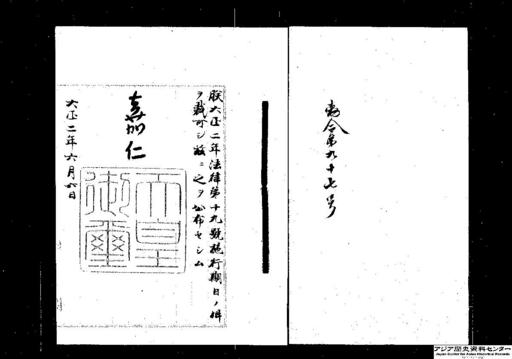 勅令第九十七号
朕大正二年法律第十九號施行期日ノ件
ヲ裁可シ茲ニ之ヲ公布セシム
嘉仁
天皇
御璽
大正二年六月六日
アジア歴史資料センター
Japan Center for Asian Historical Records